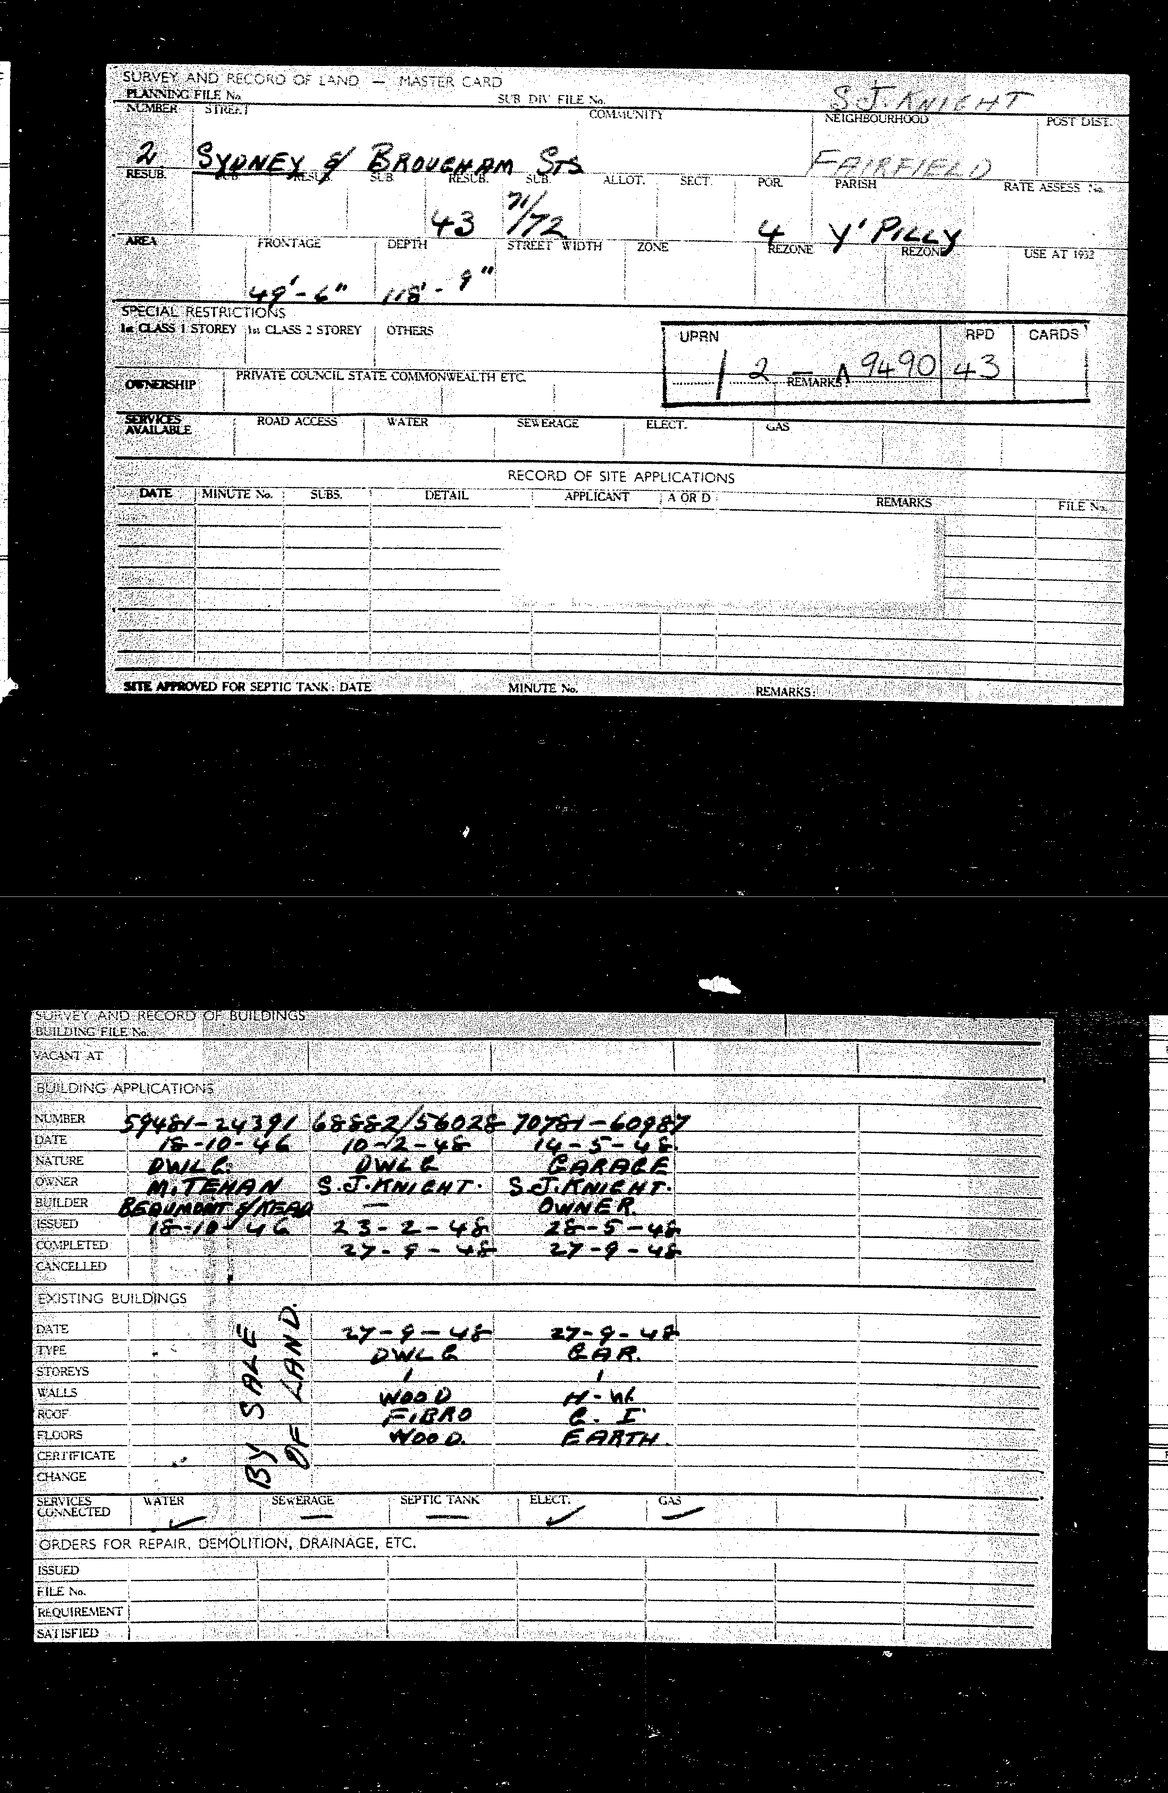 SURVEY AND RECORD OF LAND — MASTER CARD
PLANNING FILE No. SUB DIV FILE No. S.J. KNIGHT
NUMBER STREET COMMUNITY NEIGHBOURHOOD POST DIST.
2 SYDNEY & BROUGHAM STS FAIRFIELD
RESUB. SUB. RESUB. SUB. RESUB. SUB. ALLOT. SECT. POR. PARISH RATE ASSESS No.
43 71/72 4 Y' PILLY
AREA FRONTAGE DEPTH STREET WIDTH ZONE REZONE REZONE USE AT 1932
49'-6" 118'-9"
SPECIAL RESTRICTIONS
1st CLASS 1 STOREY 1st CLASS 2 STOREY OTHERS
UPRN RPD CARDS
/ 2 — A 9490 43
OWNERSHIP PRIVATE COUNCIL STATE COMMONWEALTH ETC. REMARKS
SERVICES AVAILABLE ROAD ACCESS WATER SEWERAGE ELECT. GAS
RECORD OF SITE APPLICATIONS
DATE MINUTE No. SUBS. DETAIL APPLICANT A OR D REMARKS FILE No.
SITE APPROVED FOR SEPTIC TANK: DATE MINUTE No. REMARKS:
SURVEY AND RECORD OF BUILDINGS
BUILDING FILE No.
VACANT AT
BUILDING APPLICATIONS
NUMBER 59481-24391 68882/56028 70781-60987
DATE 18-10-46 10-2-48 14-5-48
NATURE DWLG. DWLG GARAGE
OWNER M. TEHAN S.J. KNIGHT. S.J. KNIGHT.
BUILDER BEAUMONT & READ — OWNER.
ISSUED 18-10-46 23-2-48 28-5-48
COMPLETED 27-9-48 27-9-48
CANCELLED
BY SALE
OF LAND.
EXISTING BUILDINGS
DATE 27-9-48 27-9-48
TYPE DWLG GAR.
STOREYS 1 1
WALLS WOOD H-W.
ROOF FIBRO G. I
FLOORS WOOD. EARTH.
CERTIFICATE
CHANGE
SERVICES CONNECTED WATER ✓ SEWERAGE — SEPTIC TANK — ELECT. ✓ GAS ✓
ORDERS FOR REPAIR, DEMOLITION, DRAINAGE, ETC.
ISSUED
FILE No.
REQUIREMENT
SATISFIED